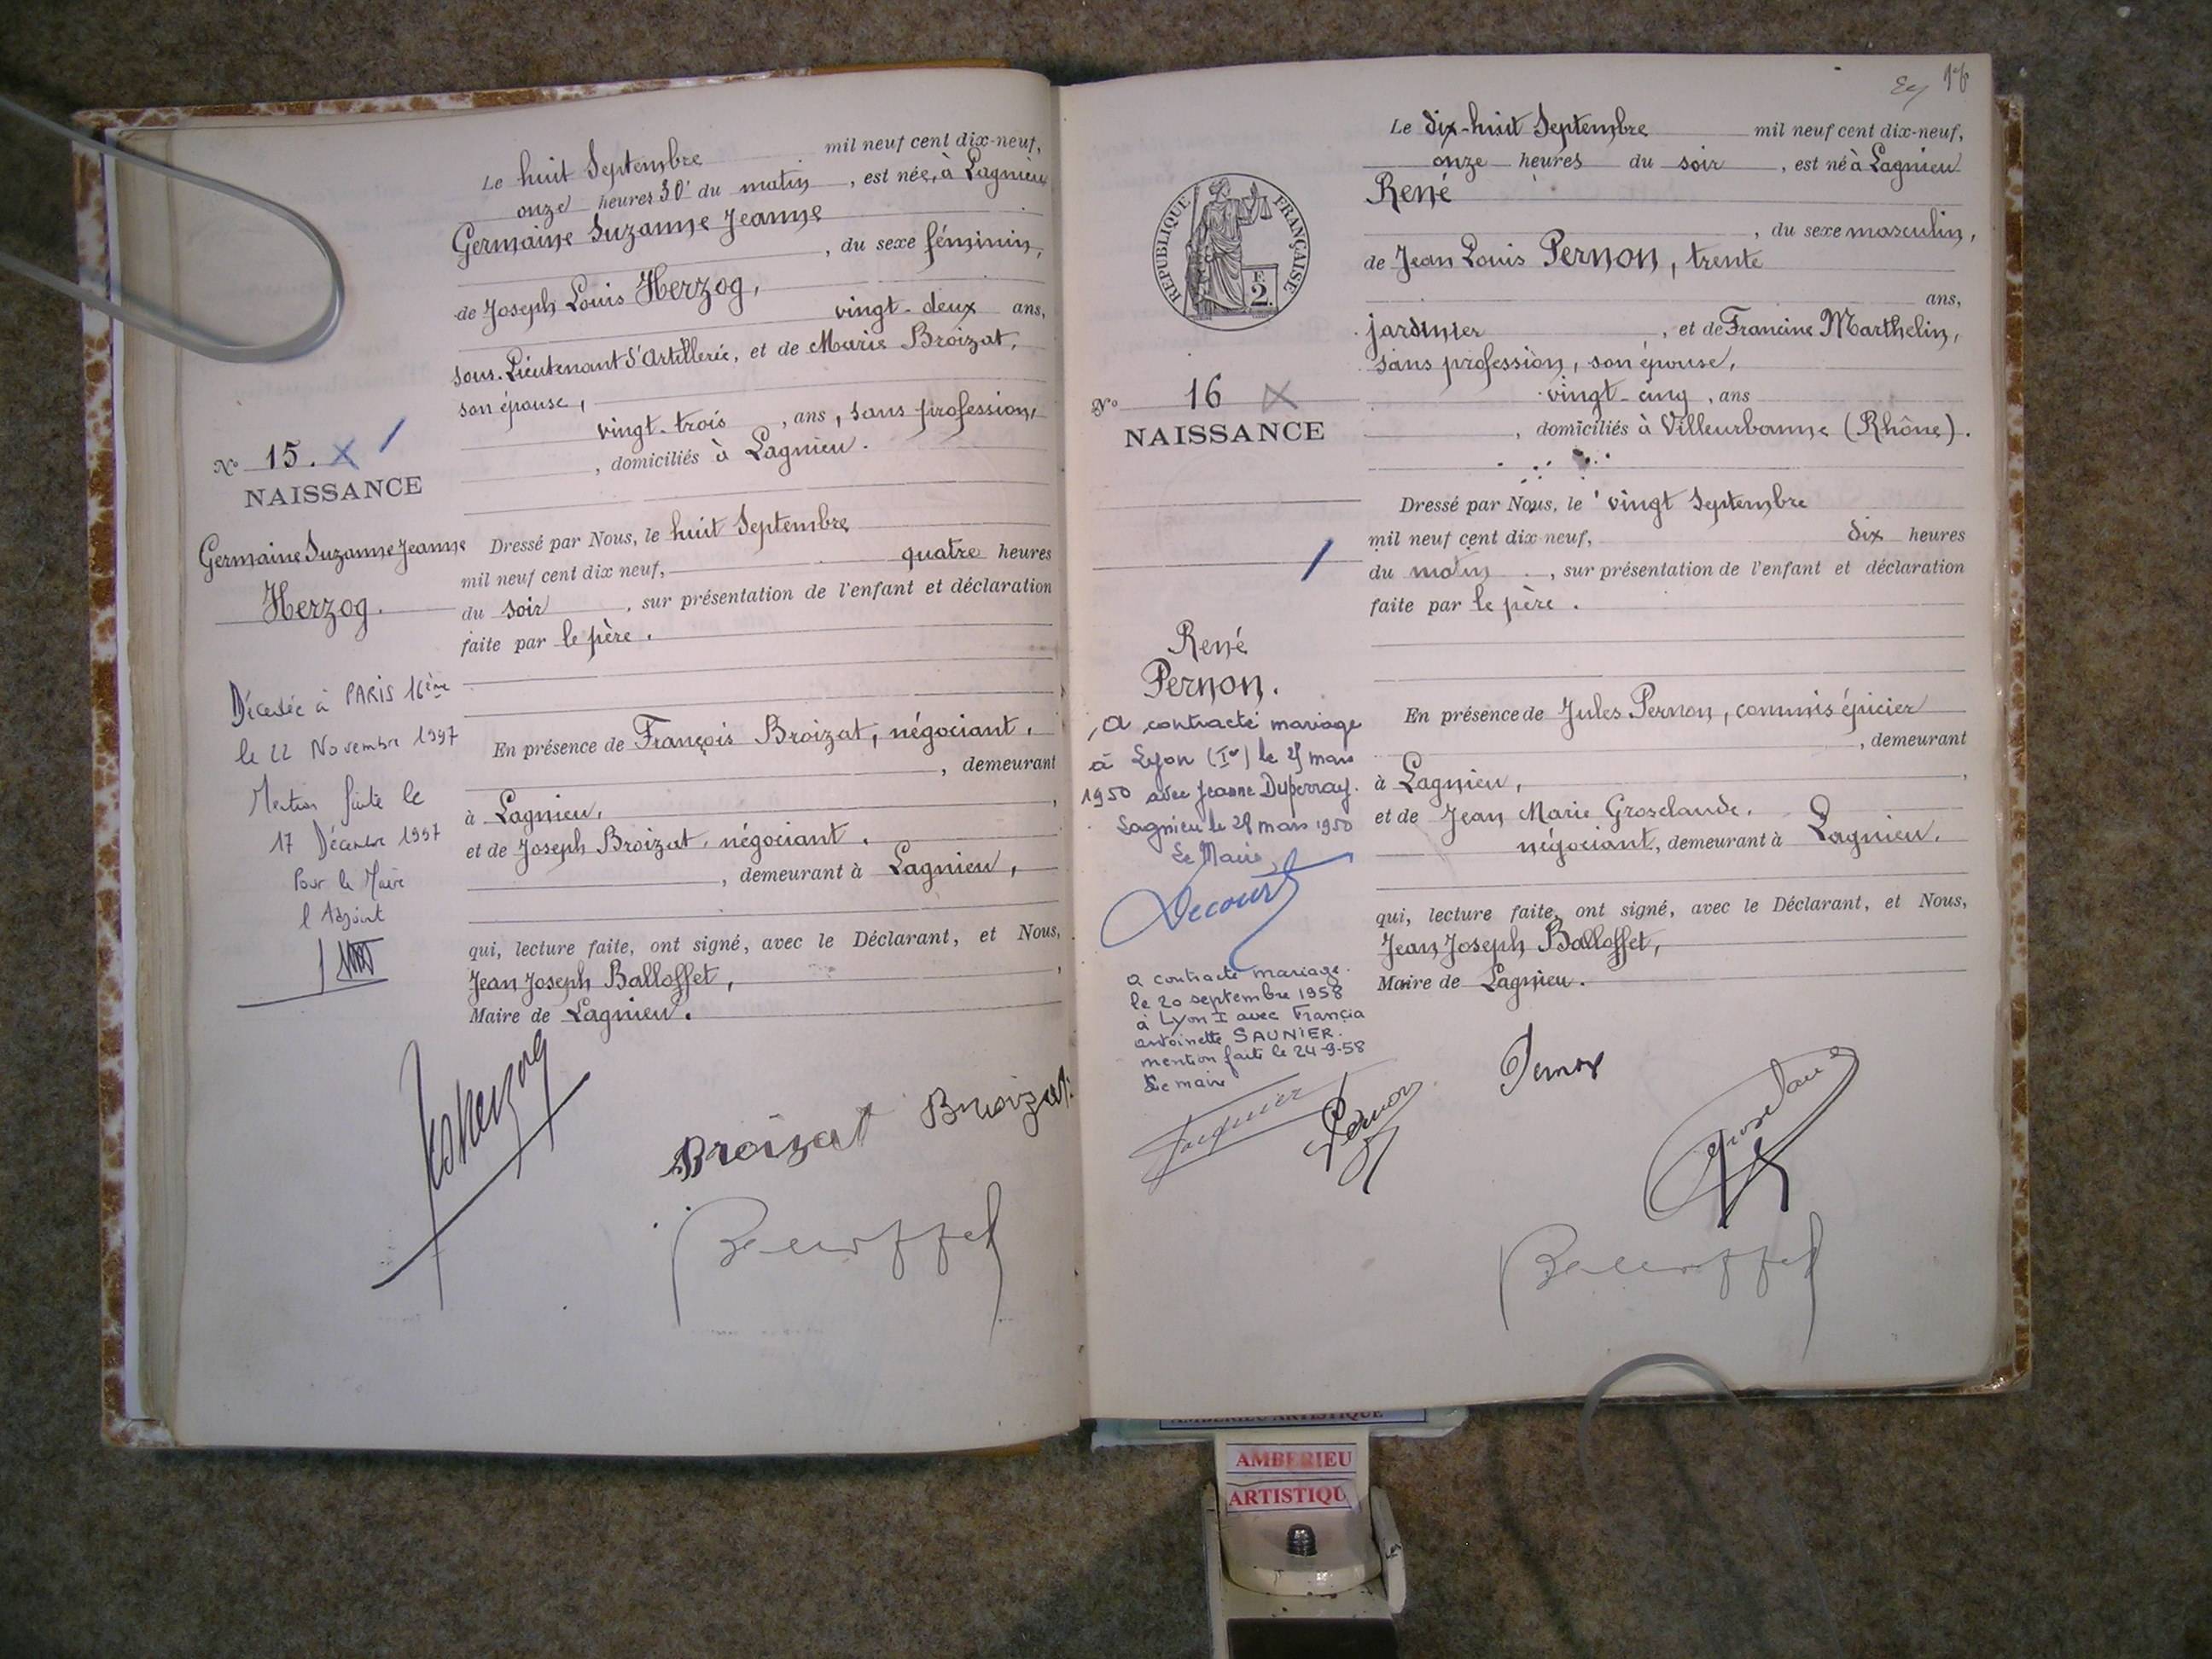 Le huit Septembre mil neuf cent dix-neuf,
onze heures 30' du matin, est née, à Lagnieu
Germaine Suzanne Jeanne
, du sexe féminin,
de Joseph Louis Herzog,
vingt-deux ans,
sous-Lieutenant d'Artillerie, et de Marie Broizat,
son épouse,
vingt-trois, ans, sans profession,
, domiciliés à Lagnieu.
Nº 15.
NAISSANCE
Germaine Suzanne Jeanne
Herzog.
Dressé par Nous, le huit Septembre
mil neuf cent dix neuf, quatre heures
du soir, sur présentation de l'enfant et déclaration
faite par le père.
Décédée à PARIS 16ème
le 22 Novembre 1997
Mention faite le
17 Décembre 1997
Pour le Maire
l'Adjoint
En présence de François Broizat, négociant,
, demeurant
à Lagnieu,
et de Joseph Broizat, négociant,
, demeurant à Lagnieu,
qui, lecture faite, ont signé, avec le Déclarant, et Nous,
Jean Joseph Balloffet,
Maire de Lagnieu.
Herzog
Broizat Broizat
Balloffet
16
Le dix-huit Septembre mil neuf cent dix-neuf,
onze heures du soir, est né à Lagnieu
René
, du sexe masculin,
de Jean Louis Pernon, trente
ans,
jardinier, et de Francine Marthelin,
sans profession, son épouse,
vingt-cinq, ans
, domiciliés à Villeurbanne (Rhône).
RÉPUBLIQUE FRANÇAISE
2
Nº 16
NAISSANCE
René
Pernon.
Dressé par Nous, le vingt Septembre
mil neuf cent dix-neuf, dix heures
du matin, sur présentation de l'enfant et déclaration
faite par le père.
A contracté mariage
à Lyon (Ier) le mars
1950 avec Jeanne Duperray.
Lagnieu le 28 mars 1950
Le Maire,
Decourt
a contracté mariage
le 20 septembre 1958
à Lyon I avec Francia
antoinette SAUNIER.
mention faite le 24-9-58
Le maire
En présence de Jules Pernon, commis épicier
, demeurant
à Lagnieu,
et de Jean Marie Grosclaude,
négociant, demeurant à Lagnieu,
qui, lecture faite, ont signé, avec le Déclarant, et Nous,
Jean Joseph Balloffet,
Maire de Lagnieu.
Pernon
Pernon
Balloffet
AMBERIEU ARTISTIQUE
AMBERIEU
ARTISTIQU